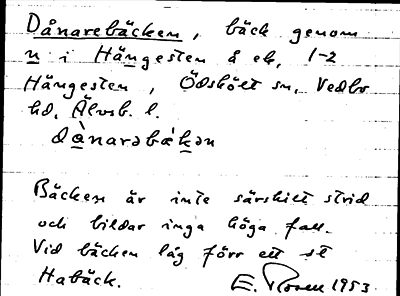 Dånarebäcken, bäck genom
n i Hängesten å ek. 1-2
Hängesten, Ödskölt sn, Vedbo
hd. Älvsb. l.
dånarəbäkən
Bäcken är inte särskilt strid
och bildar inga höga fall.
Vid bäcken låg förr ett st
Habäck.
E. Rosell 1953